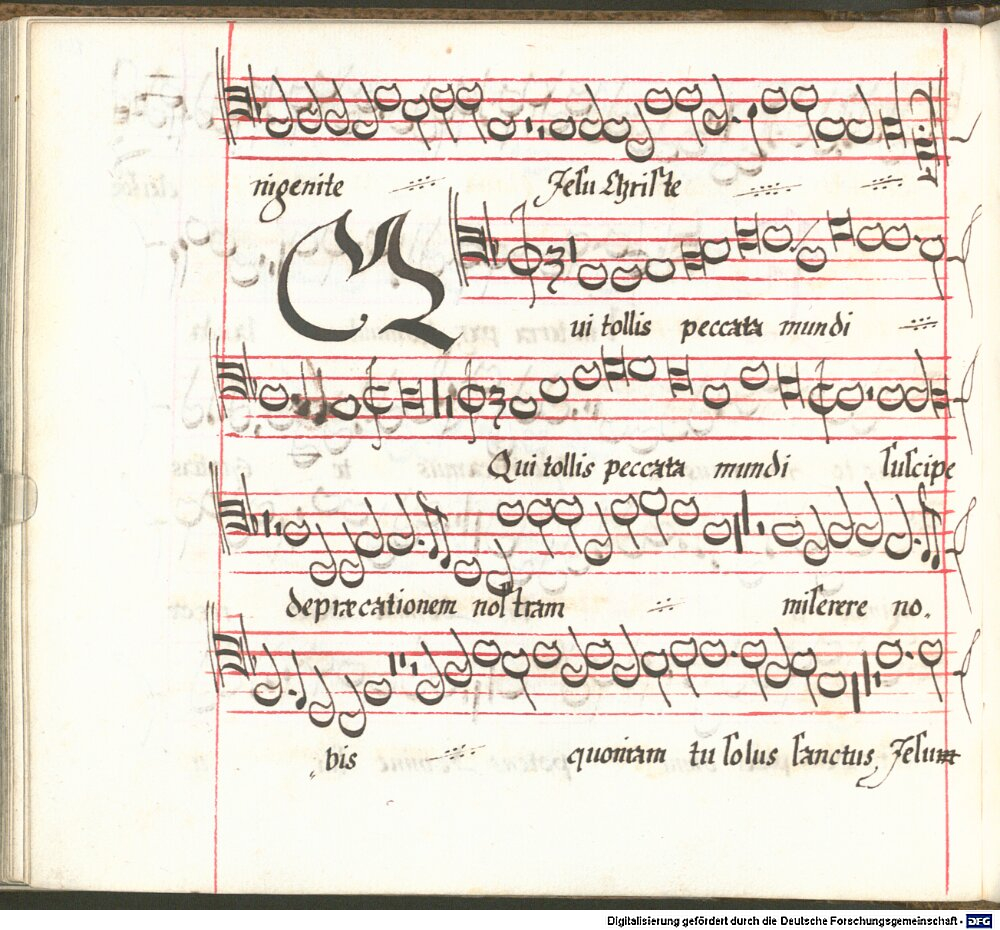 nigenite Jeſu Chriſte
Qui tollis peccata mundi
Qui tollis peccata mundi ſuſcipe
depræcationem noſtram miſerere no.
bis quoniam tu ſolus ſanctus, Jeſum
Digitalisierung gefördert durch die Deutsche Forschungsgemeinschaft - DFG